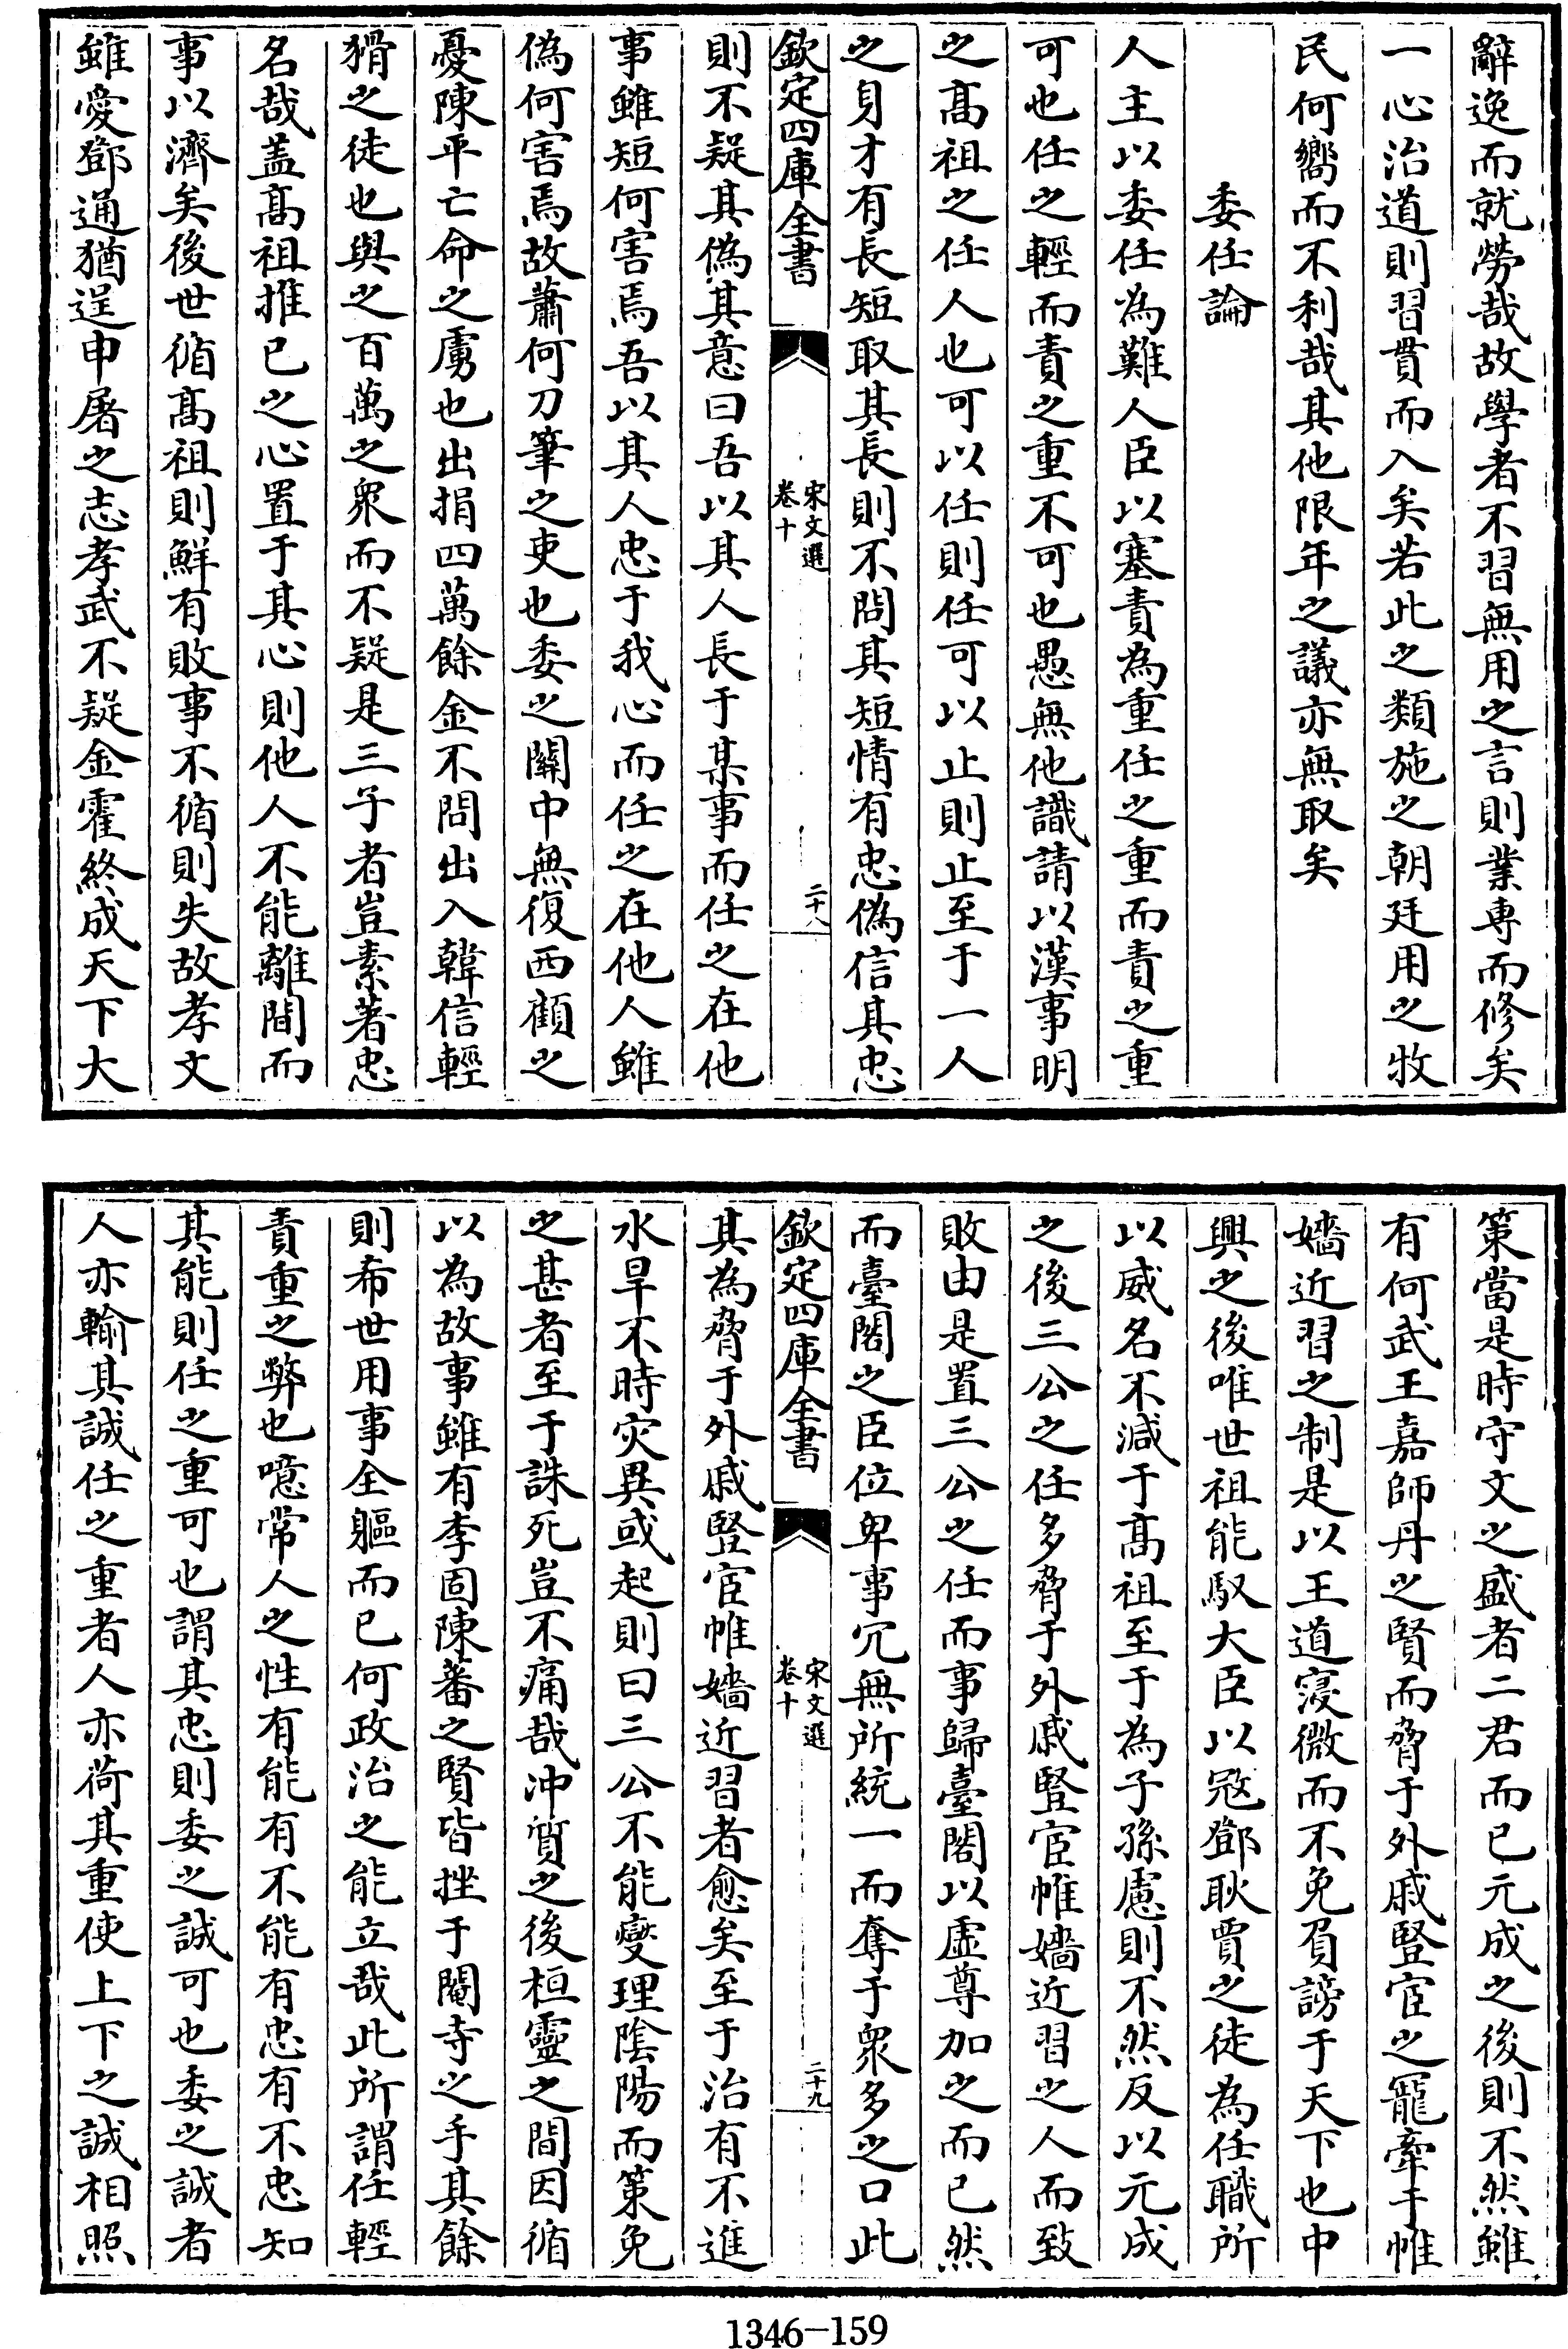 辭逸而就勞哉故學者不習無用之言則業専而修矣
一心治道則習貫而入矣若此之類施之朝廷用之牧
民何嚮而不利哉其他限年之議亦無取矣
委任論
人主以委任為難人臣以塞責為重任之重而責之重
可也任之輕而責之重不可也愚無他識請以漢事明
之髙祖之任人也可以任則任可以止則止至于一人
之身才有長短取其長則不問其短情有忠偽信其忠
欽定四庫全書
宋文選
卷十
二十八
則不疑其偽其意曰吾以其人長于某事而任之在他
事雖短何害焉吾以其人忠于我心而任之在他人雖
偽何害焉故蕭何刀筆之吏也委之關中無復西顧之
憂陳平亡命之虜也出捐四萬餘金不問出入韓信輕
猾之徒也與之百萬之衆而不疑是三子者豈素著忠
名哉盖髙祖推已之心置于其心則他人不能離間而
事以濟矣後世循髙祖則鮮有敗事不循則失故孝文
雖愛鄧通猶逞申屠之志孝武不疑金霍終成天下大
策當是時守文之盛者二君而已元成之後則不然雖
有何武王嘉師丹之賢而脅于外戚豎宦之寵牽于帷
嬙近習之制是以王道寖微而不免負謗于天下也中
興之後唯世祖能馭大臣以宼鄧耿賈之徒為任職所
以威名不減于髙祖至于為子孫慮則不然反以元成
之後三公之任多脅于外戚豎宦帷嬙近習之人而致
敗由是置三公之任而事歸臺閣以虚尊加之而已然
而臺閣之臣位卑事冗無所統一而奪于衆多之口此
欽定四庫全書
宋文選
卷十
二十九
其為脅于外戚豎宦帷嬙近習者愈矣至于治有不進
水旱不時灾異或起則曰三公不能燮理隂陽而策免
之甚者至于誅死豈不痛哉沖質之後桓靈之間因循
以為故事雖有李固陳蕃之賢皆挫于閹寺之手其餘
則希世用事全軀而已何政治之能立哉此所謂任輕
責重之弊也噫常人之性有能有不能有忠有不忠知
其能則任之重可也謂其忠則委之誠可也委之誠者
人亦輸其誠任之重者人亦荷其重使上下之誠相照
1346-159